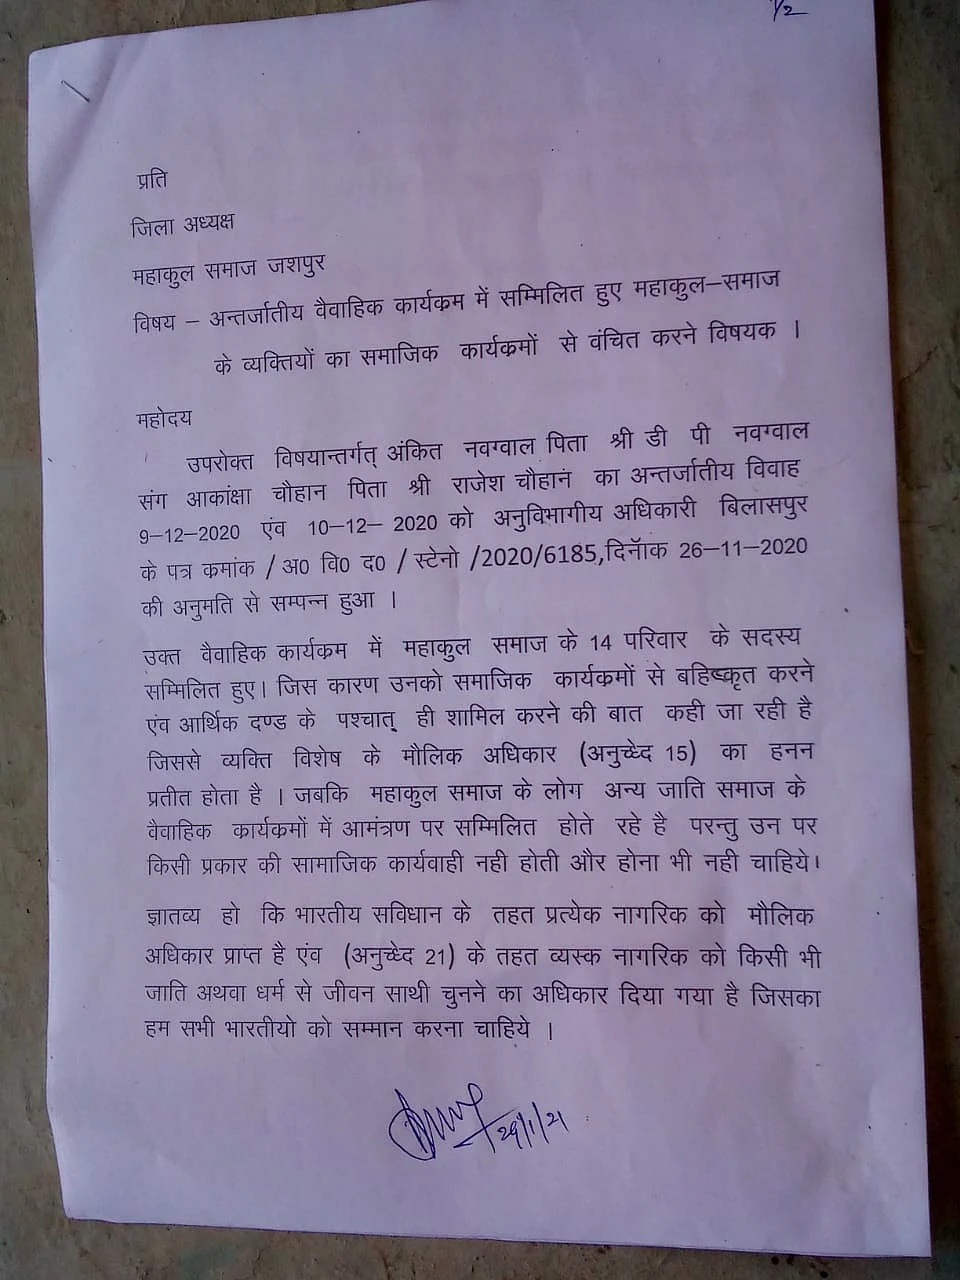 1/2
प्रति
जिला अध्यक्ष
महाकुल समाज जशपुर
विषय – अन्तर्जातीय वैवाहिक कार्यकम में सम्मिलित हुए महाकुल–समाज
के व्यक्तियों का समाजिक कार्यकमों से वंचित करने विषयक ।
महोदय
उपरोक्त विषयान्तर्गत् अंकित नवग्वाल पिता श्री डी पी नवग्वाल
संग आकांक्षा चौहान पिता श्री राजेश चौहानं का अन्तर्जातीय विवाह
9–12–2020 एंव 10–12– 2020 को अनुविभागीय अधिकारी बिलासपुर
के पत्र कमांक / अ0 वि0 द0 / स्टेनो /2020/6185,दिनॅाक 26–11–2020
की अनुमति से सम्पन्न हुआ ।
उक्त वैवाहिक कार्यकम में महाकुल समाज के 14 परिवार के सदस्य
सम्मिलित हुए। जिस कारण उनको समाजिक कार्यकमों से बहिष्कृत करने
एंव आर्थिक दण्ड के पश्चात् ही शामिल करने की बात कही जा रही है
जिससे व्यक्ति विशेष के मौलिक अधिकार (अनुच्छेद 15) का हनन
प्रतीत होता है । जबकि महाकुल समाज के लोग अन्य जाति समाज के
वैवाहिक कार्यकमों में आमंत्रण पर सम्मिलित होते रहे है परन्तु उन पर
किसी प्रकार की सामाजिक कार्यवाही नही होती और होना भी नही चाहिये।
ज्ञातव्य हो कि भारतीय सविधान के तहत प्रत्येक नागरिक को मौलिक
अधिकार प्राप्त है एंव (अनुच्छेद 21) के तहत व्यस्क नागरिक को किसी भी
जाति अथवा धर्म से जीवन साथी चुनने का अधिकार दिया गया है जिसका
हम सभी भारतीयो को सम्मान करना चाहिये ।
29/1/21